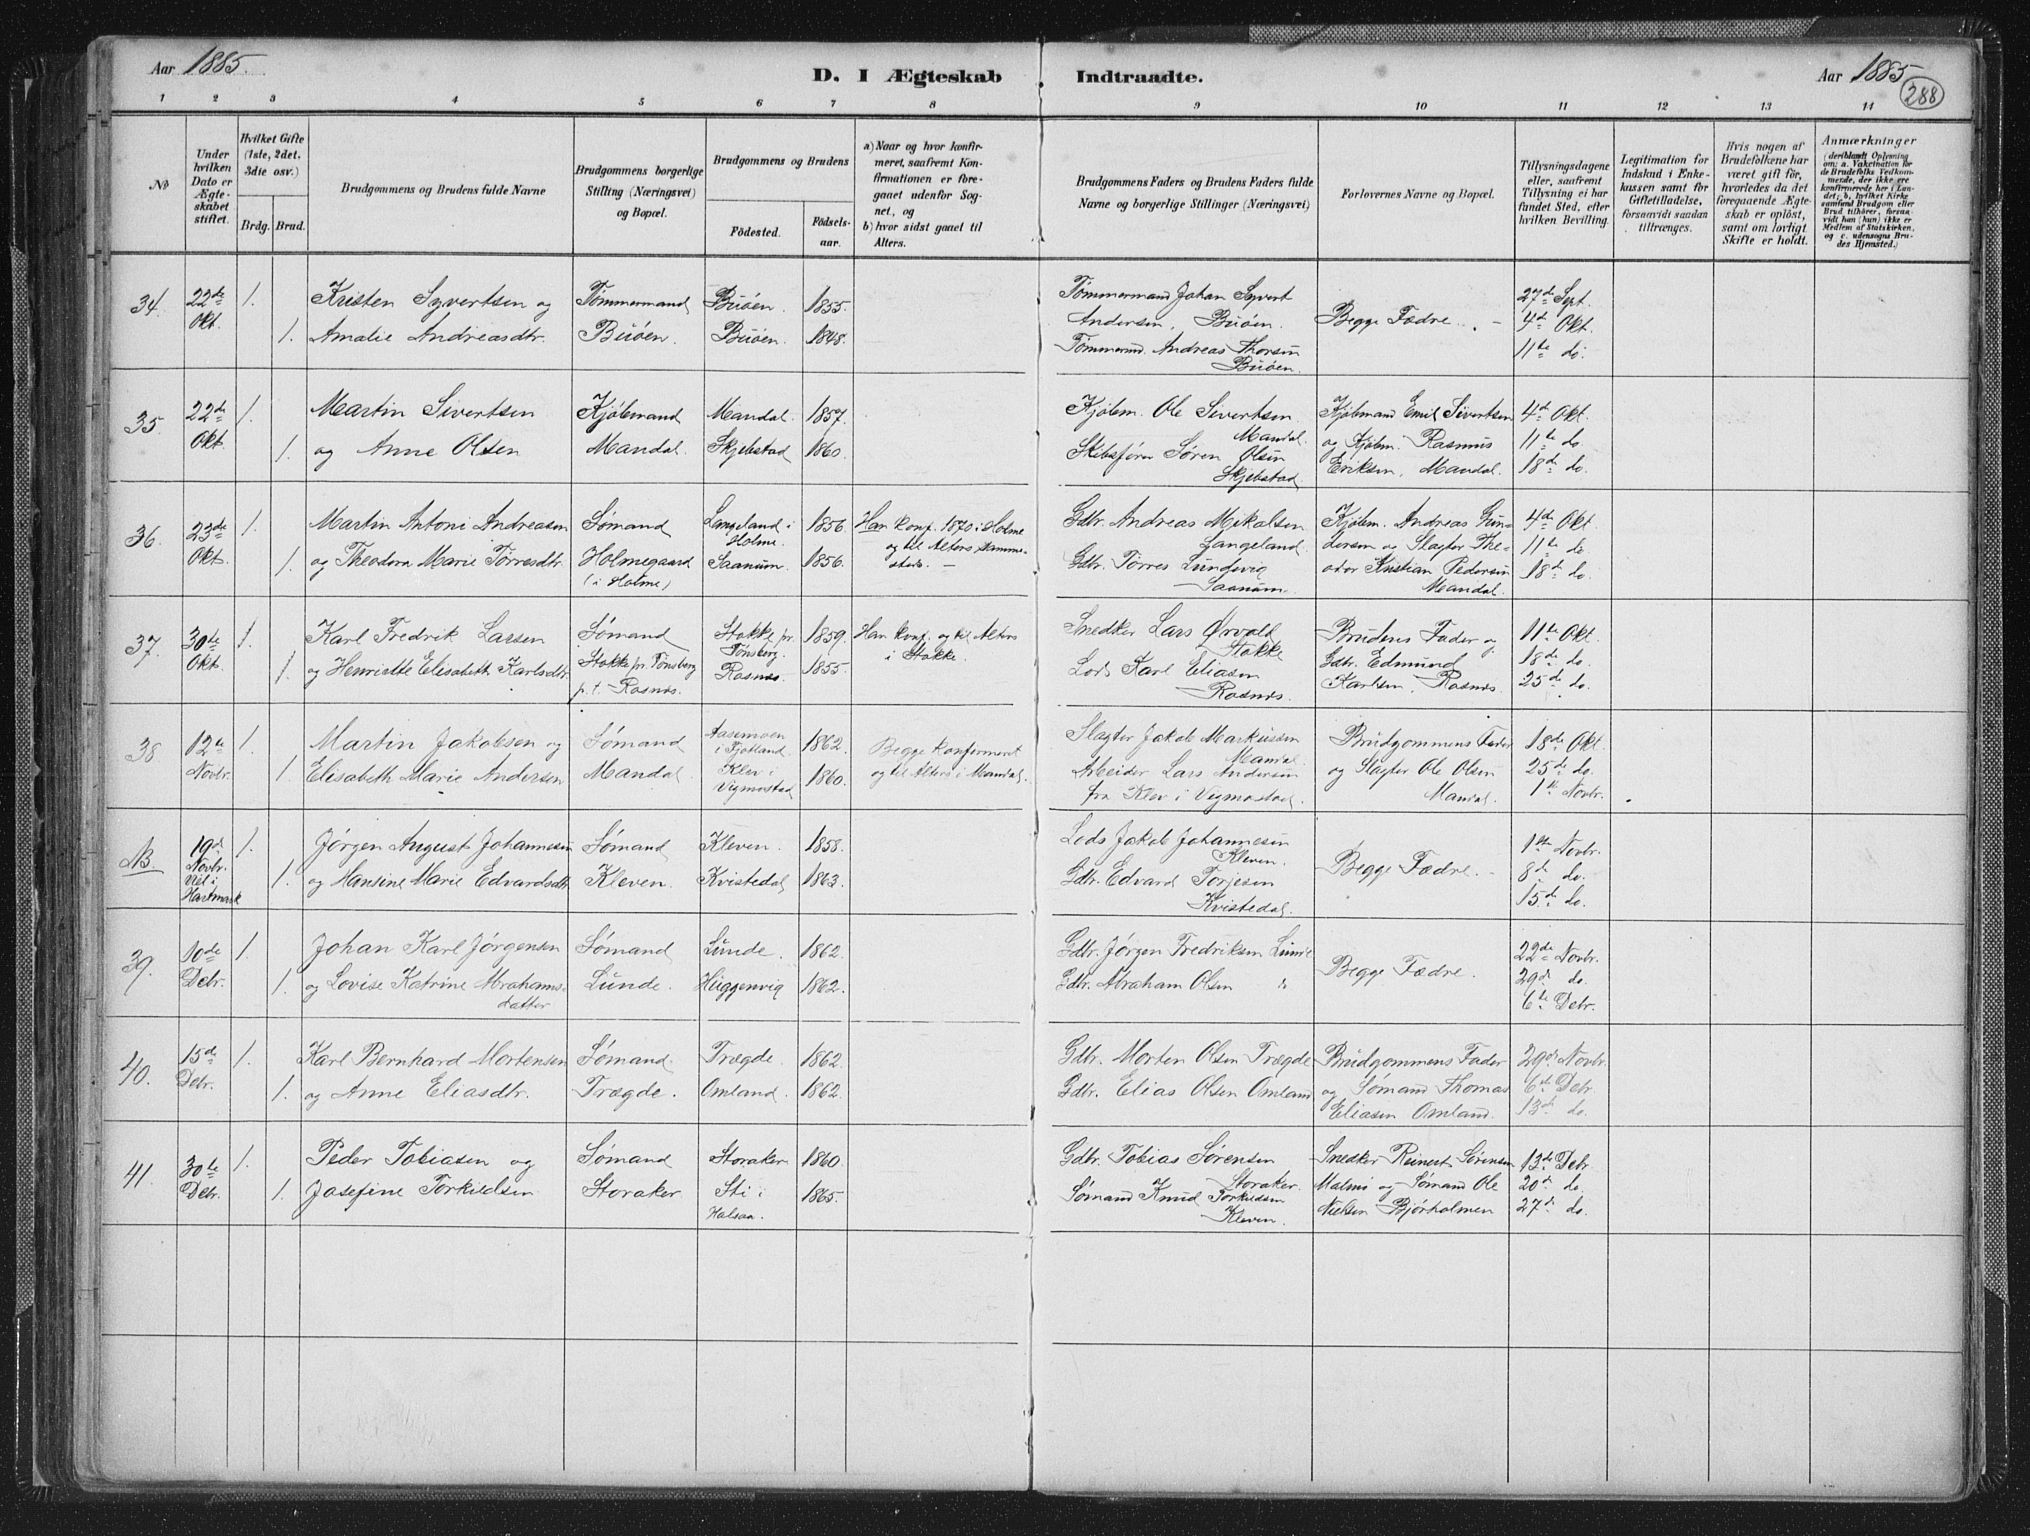 Aar 1885.
D. I Ægteskab Indtraadte.
Aar 1885
288
1 2 3 4 5 6 7 8 9 10 11 12 13 14
No
Under hvilken Dato er Ægteskabet stiftet.
Hvilket Gifte (1ste, 2det, 3die osv.)
Brdg. Brud.
Brudgommens og Brudens fulde Navne
Brudgommens borgerlige Stilling (Næringsvei) og Bopæl.
Brudgommens og Brudens
Födested.
Födselsaar.
a) Naar og hvor konfirmeret, saafremt Konfirmationen er foregaaet udenfor Sognet, og
b) hvor sidst gaaet til Alters.
Brudgommens Faders og Brudens Faders fulde Navne og borgerlige Stillinger (Næringsvei)
Forlovernes Navne og Bopæl.
Tillysningsdagene eller, saafremt Tillysning ei har fundet Sted, efter hvilken Bevilling.
Legitimation for Indskud i Enkekassen samt for Giftetilladelse, forsaavidt saadan tiltrænges.
Hvis nogen af Brudefolkene har været gift før, hvorledes da det foregaaende Ægteskab er opløst, samt om lovligt Skifte er holdt.
Anmærkninger
(deriblandt Oplysning om: a. Vakcination for de Brudefolks Vedkommende, der ikke ere konfirmerede her i Landet; b. hvilket Kirkesamfund Brudgom eller Brud tilhører, forsaavidt han (hun) ikke er Medlem af Statskirken, og c. udensogns Brudes Hjemsted.)
34. 22de Okt. 1. 1.
Kristen Syvertsen og
Amalie Andreasdtr.
Tømmermand
Buöen.
Buöen. 1855.
Buöen. 1848.
Tömmermand Johan Syvert
Andersen, Buöen.
Tömmermd. Andreas Thorsen
Buöen.
Begge Fædre.
27de Sept.
4de Okt.
11te do.
35. 22de Okt. 1. 1.
Martin Sivertsen
og Anne Olsen
Kjöbmand
Mandal.
Mandal. 1857.
Skjebstad 1860.
Kjöbm. Ole Sivertsen
Mandal.
Skibsförer Sören Olsen
Skjebstad
Kjöbmand Emil Sivertsen
og Kjöbm. Rasmus
Eriksen, Mandal.
4de Okt.
11te do.
18de do.
36. 23de Okt. 1. 1.
Martin Antoni Andreasen
og Theodora Marie Tørresdtr.
Sømand
Holmegaard
(i Holme)
Langeland i
Holme. 1856
Saanum. 1856.
Han konf. 1870 i Holme
og til Alters sammesteds. —
Gdbr. Andreas Mikalsen
Langeland.
Gdbr. Törres Lundevig
Saanum.
Kjöbm. Andreas Gundersen og Slagter Theodor Kristian Pedersen
Mandal.
4de Okt
11te do
18de do.
37. 30te Okt. 1. 1.
Karl Fredrik Larsen
og Henriette Elisabeth Karlsdtr.
Sömand
Stokke pr. Tönsberg
p. t. Rosnæs.
Stokke pr.
Tönsberg. 1859.
Rosnæs 1855.
Han konf. og til Alters
i Stokke.
Snedker Lars Ørvold
Stokke
Lods Karl Eliasen
Rosnæs.
Brudens Fader og
Gdbr. Edmund
Karlsen, Rosnæs.
11te Okt.
18de do.
25de do.
38 12te Novbr. 1. 1.
Martin Jakobsen og
Elisabeth Marie Andersen
Sömand
Mandal.
Aasemoen
i Fjotland. 1862.
Klev i
Vigmostad 1860.
Begge konfirmeret
og til Alters i Mandal.
Slagter Jakob Markussen
Mandal
Arbeider Lars Andersen
fra Klev i Vigmostad.
Brudgommens Fader
og Slagter Ole Olsen
Mandal.
18de Okt.
25de do.
1ste Novbr.
NB. 19de Novbr. Viet i Hartmark 1. 1.
Jörgen August Johannesen
og Hansine Marie Edvardsdtr.
Sömand
Kleven.
Kleven. 1858.
Kvistedal 1863.
Lods Jakob Johannesen
Kleven.
Gdbr. Edvard Torjesen
Kvistedal.
Begge Fædre.
1ste Novbr.
8de do.
15de do.
39. 10de Debr. 1. 1.
Johan Karl Jörgensen
og Lovise Katrine Abrahamsdatter
Sömand
Lunde.
Lunde. 1862.
Huggenvig 1862.
Gdbr. Jörgen Fredriksen Lunde
Gdbr. Abraham Olsen do
Begge Fædre.
22de Novbr.
29de do.
6te Debr.
40. 15de Debr. 1. 1.
Karl Bernhard Mortensen
og Anne Eliasdtr.
Sömand
Trægde.
Trægde. 1862.
Omland. 1862.
Gdbr. Morten Olsen Trægde
Gdbr. Elias Olsen Omland
Brudgommens Fader
og Sömand Thomas
Eliasen Omland.
29de Novbr.
6te Debr.
13de do.
41. 30te Debr. 1. 1.
Peder Tobiasen og
Josefine Torkildsen
Sömand
Storaker.
Storaker 1860.
Sti i
Halsaa. 1865.
Gdbr. Tobias Sörensen
Storaker.
Sömand Knud Torkildsen
Kleven.
Snedker Reinert Sörensen
Malmö og Sömand Ole
Nielsen Bjørholmen
13de Debr.
20de do.
27de do.